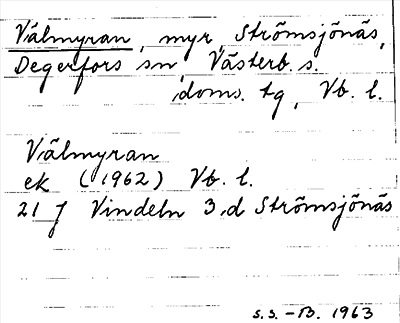 Välmyran, myr, Strömsjönäs,
Degerfors sn, Västerb. s.
doms. tg, Vb. l.
Välmyran
ek (1962) Vb. l.
21 J Vindeln 3.d Strömsjönäs
s.s. -B. 1963